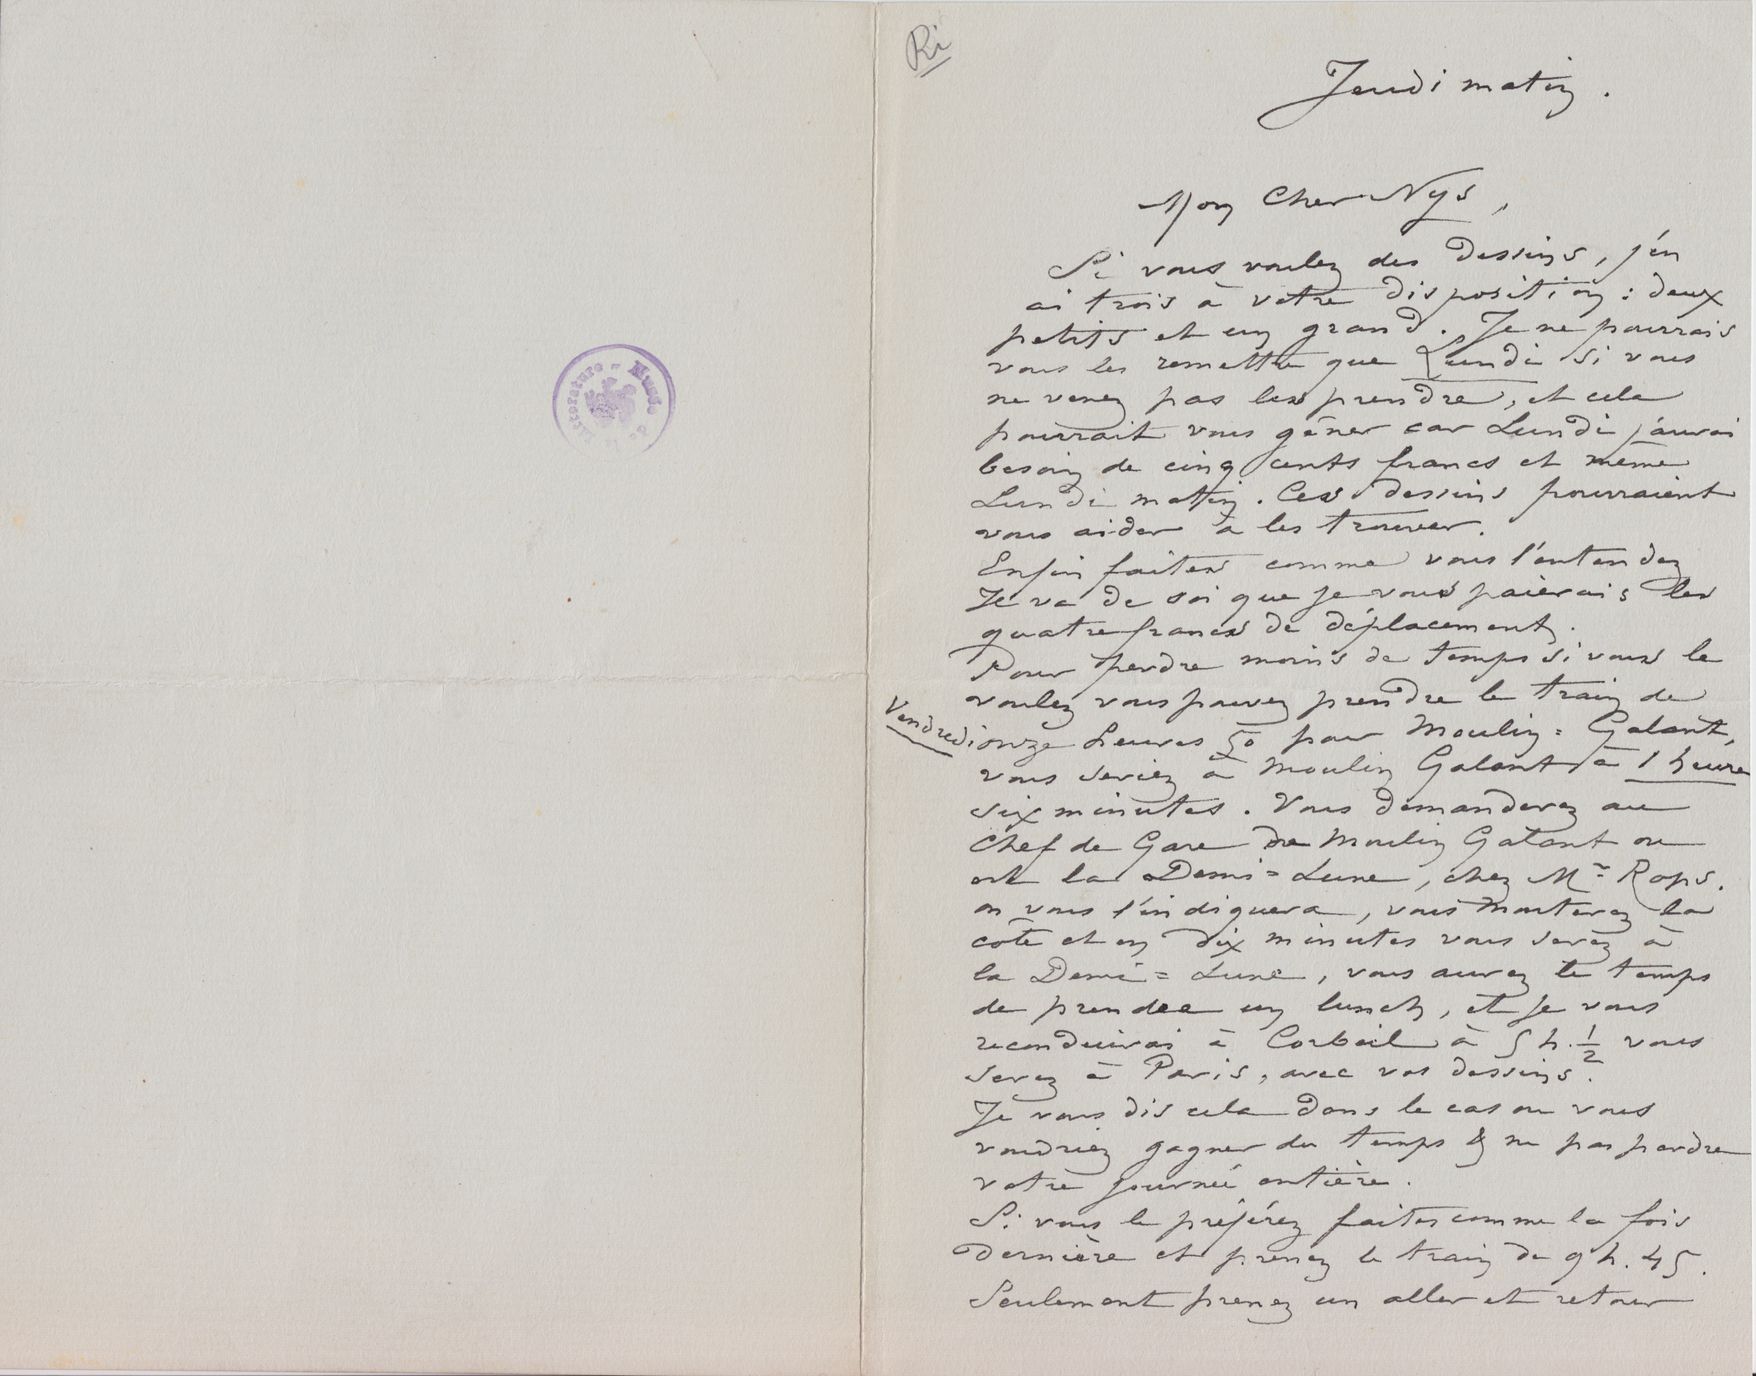 Ri
Jeudi matin.
Mon Cher Nys,
Si vous voulez des dessins, j'en
ai trois à votre disposition : deux
petits et un grand. Je ne pourrais
vous les remettre que Lundi si vous
ne venez pas les prendre, et cela
pourrait vous gêner car Lundi j'aurai
besoin de cinq cents francs et même
Lundi matin. Ces dessins pourraient
vous aider à les trouver.
Enfin faites comme vous l'entendez
Il va de soi que je vous paierais les
quatre francs de déplacement.
Pour perdre moins de temps si vous le
voulez vous pouvez prendre le train de
Vendredi
onze heures 50 pour Moulin=Galant,
vous seriez à Moulin Galant à 1 heure
six minutes. Vous demanderez au
Chef de Gare de Moulin Galant ou
est la Demi=Lune, chez Mr Rops.
on vous l'indiquera, vous monterez la
côte et en dix minutes vous serez à
la Demi=Lune, vous aurez le temps
de prendre un lunch, et je vous
reconduirai à Corbeil à 5 h. 1/2 vous
serez à Paris, avec vos dessins.
Je vous dis cela dans le cas ou vous
voudriez gagner du temps & ne pas perdre
votre journée entière.
Si vous le préférez faites comme la fois
dernière et prenez le train de 9 h. 45.
Seulement prenez un aller et retour
Musée de la Littérature